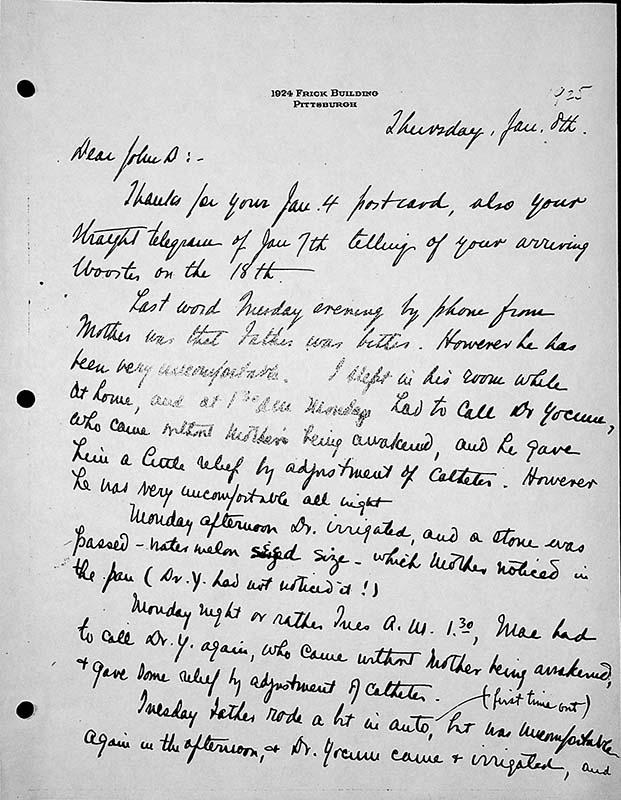 1924 Frick Building
Pittsburgh
1925
Thursday, Jan. 8th.
Dear John D:-
Thanks for your Jan. 4 postcard, also your
straight telegram of Jan 7th telling of your arriving
Wooster on the 18th
Last word Tuesday evening by phone from
Mother was that Father was better. However he has
been very uncomfortable. I slept in his room while
at home, and at 1 30 am Monday had to call Dr Yocum,
who came without Mother's being awakened, and he gave
him a little relief by adjustment of catheter. However
he was very uncomfortable all night
Monday afternoon Dr. irrigated, and a stone was
passed - water melon seed size - which Mother noticed in
the pan (Dr. Y. had not noticed it!)
Monday night or rather Tues A.M. 1.30, Mae had
to call Dr. Y. again, who came without Mother being awakened,
+ gave some relief by adjustment of catheter.
(first time out)
Tuesday Father rode a bit in auto, but was uncomfortable
again in the afternoon, + Dr. Yocum came + irrigated, and